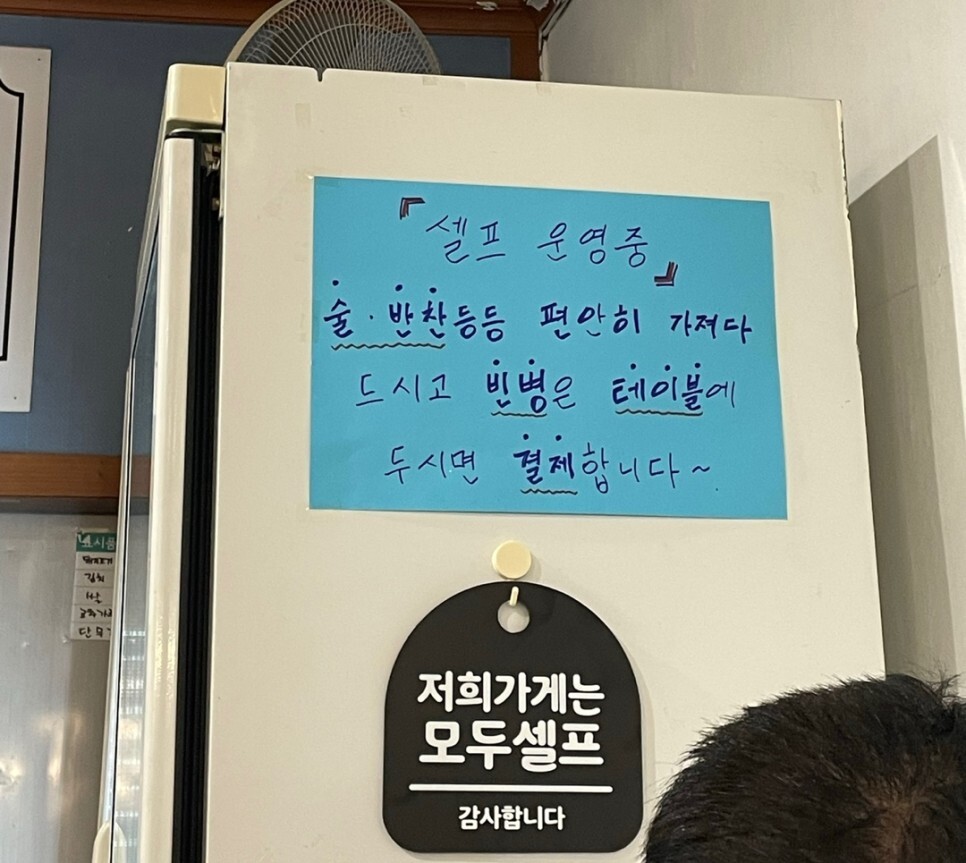 『셀프 운영중』
술·반찬등등 편안히 가져다
드시고 빈병은 테이블에
두시면 결제합니다~
저희가게는
모두셀프
감사합니다
김치